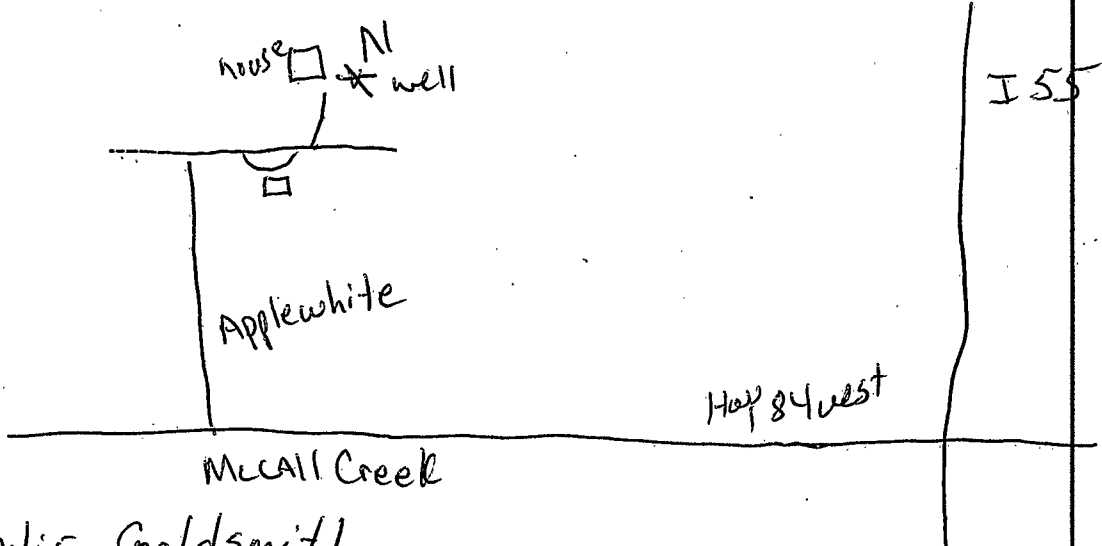 house
N
well
I 55
Applewhite
Hwy 84 west
McCAll Creek
Goldsmith